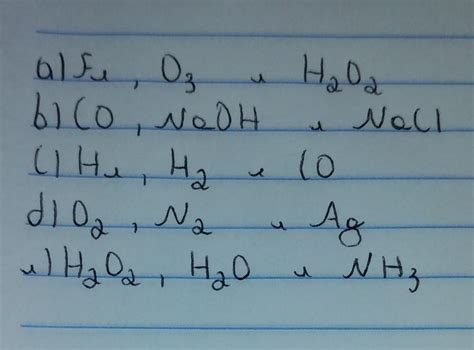 a) Fe, O₃ e H₂O₂
b) CO, NaOH e NaCl
c) He, H₂ e CO
d) O₂, N₂ e Ag
e) H₂O₂, H₂O e NH₃